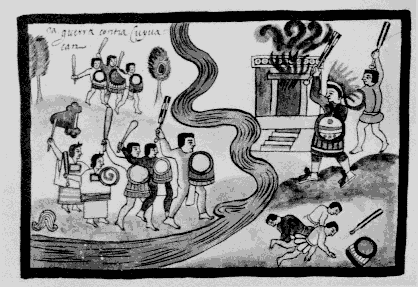 la guerra contra Cuyua
can